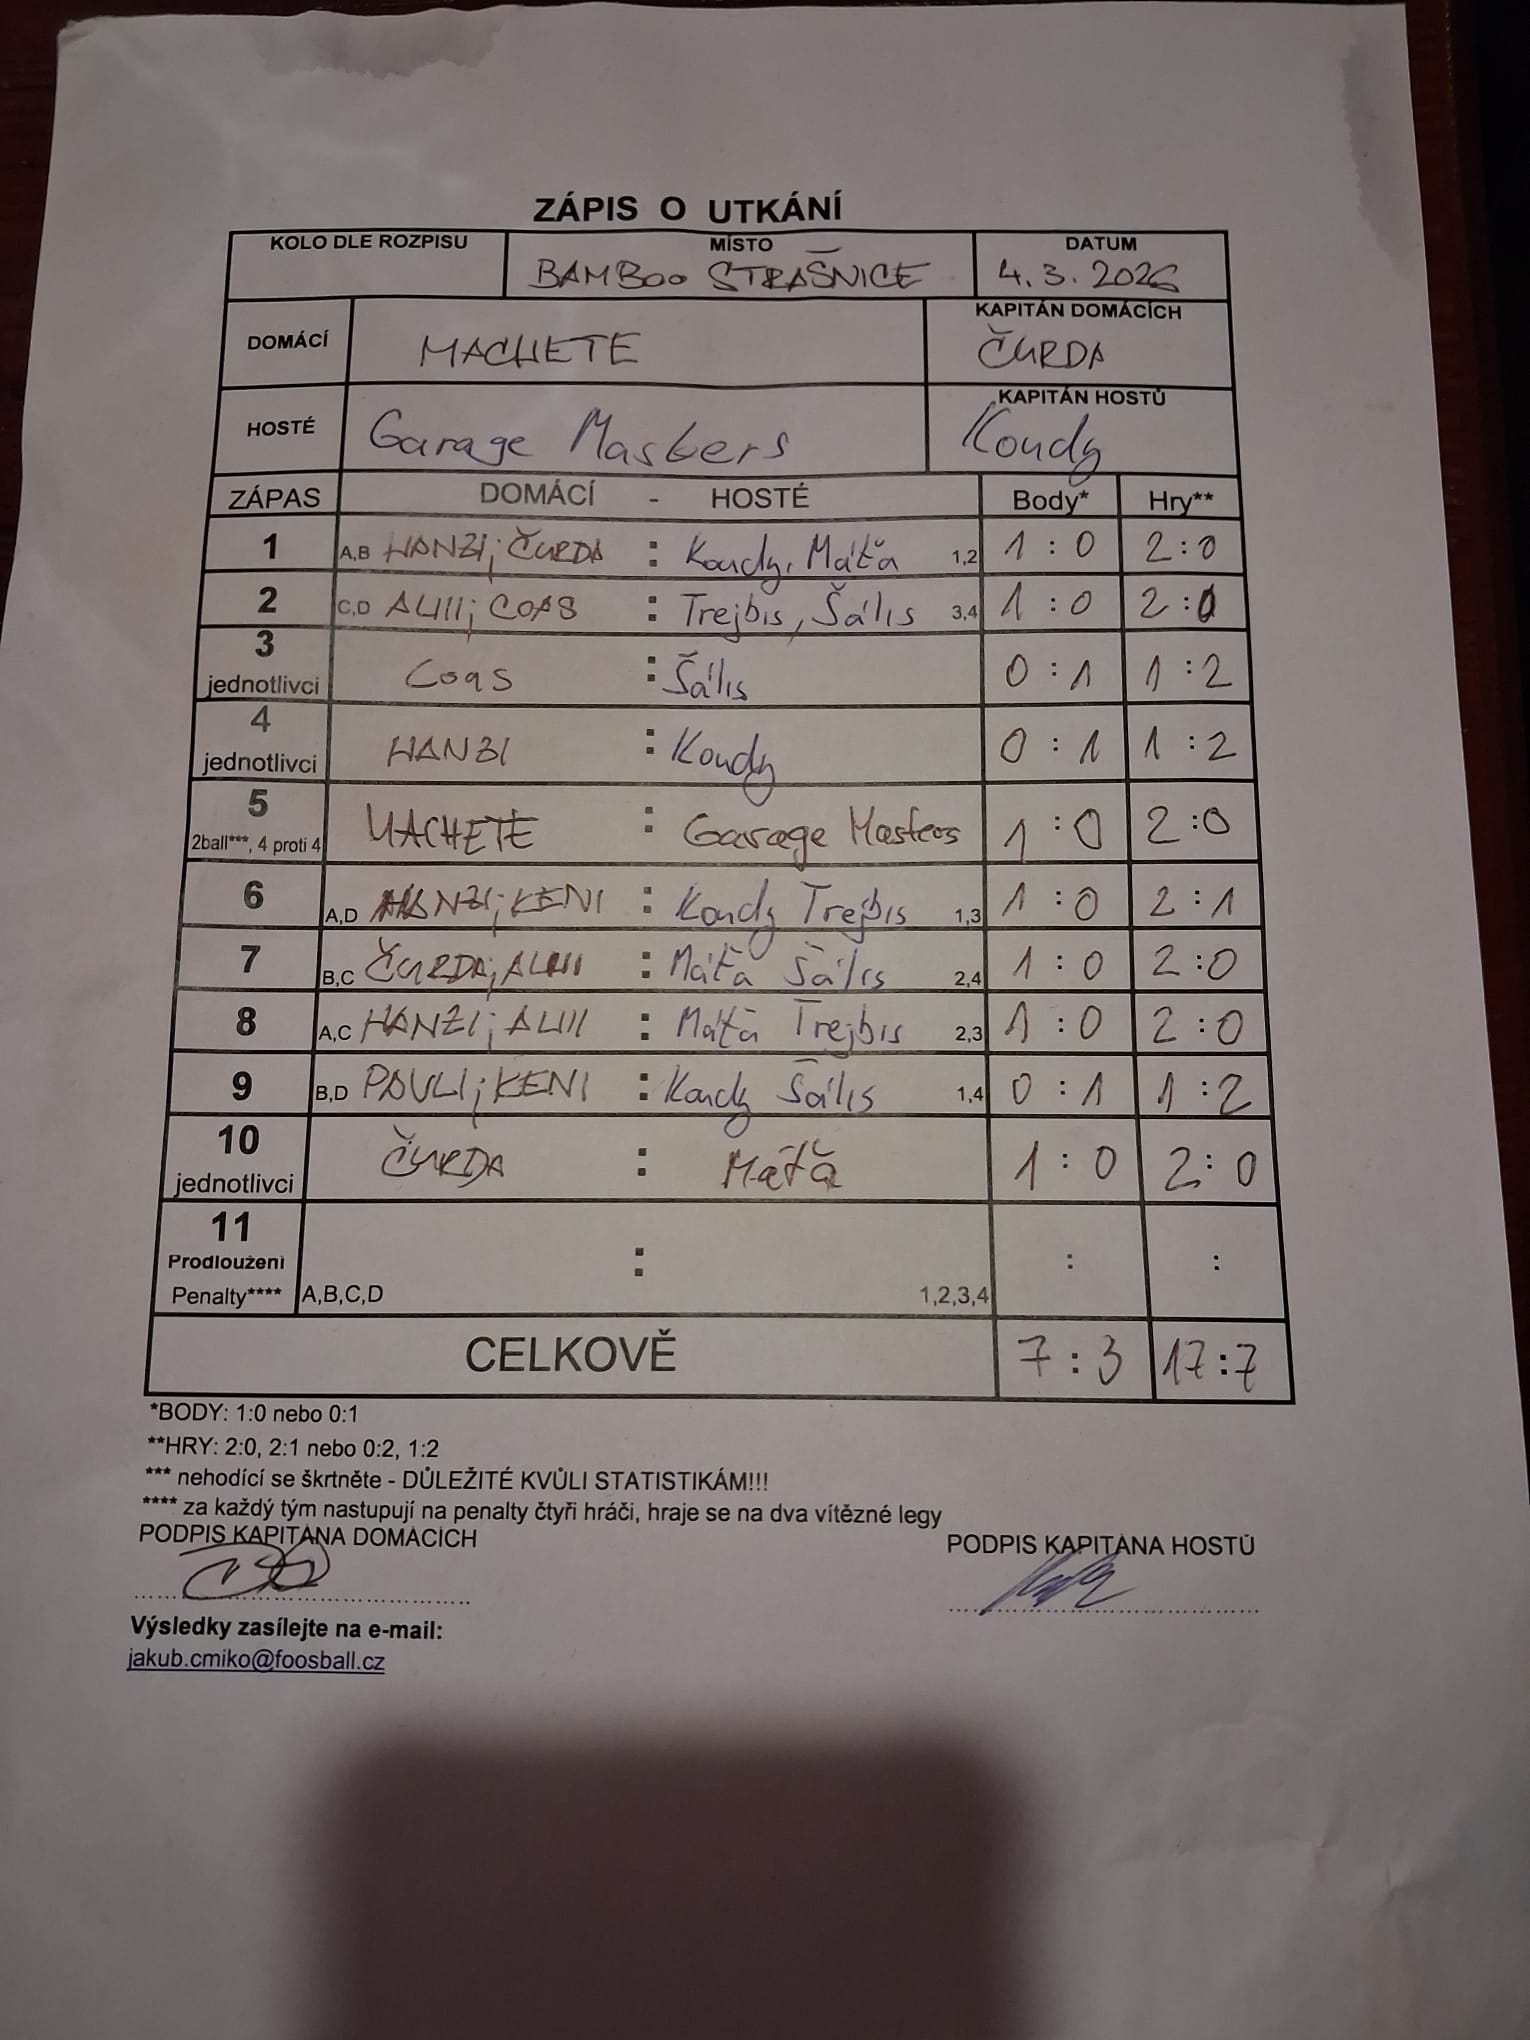 ZÁPIS O UTKÁNÍ
KOLO DLE ROZPISU MÍSTO DATUM
BAMBOO STRAŠNICE 4.3.2026
DOMÁCÍ MACHETE KAPITÁN DOMÁCÍCH ČURDA
HOSTÉ Garage Masters KAPITÁN HOSTŮ Koudy
ZÁPAS DOMÁCÍ - HOSTÉ Body* Hry**
1 A,B HANZI; ČURDA : Koudy, Máťa 1,2 1 : 0 2 : 0
2 C,D ALIII; COAS : Trejbis, Šális 3,4 1 : 0 2 : 0
3 jednotlivci Coas : Šális 0 : 1 1 : 2
4 jednotlivci HANZI : Koudy 0 : 1 1 : 2
5 2ball***, 4 proti 4 MACHETE : Garage Masters 1 : 0 2 : 0
6 A,D HANZI; KENI : Koudy Trejbis 1,3 1 : 0 2 : 1
7 B,C ČURDA; ALIII : Máťa Šális 2,4 1 : 0 2 : 0
8 A,C HANZI; ALIII : Máťa Trejbis 2,3 1 : 0 2 : 0
9 B,D PAVLI; KENI : Koudy Šális 1,4 0 : 1 1 : 2
10 jednotlivci ČURDA : Máťa 1 : 0 2 : 0
11 Prodloužení Penalty**** A,B,C,D : 1,2,3,4 : :
CELKOVĚ 7 : 3 17 : 7
*BODY: 1:0 nebo 0:1
**HRY: 2:0, 2:1 nebo 0:2, 1:2
*** nehodící se škrtněte - DŮLEŽITÉ KVŮLI STATISTIKÁM!!!
**** za každý tým nastupují na penalty čtyři hráči, hraje se na dva vítězné legy
PODPIS KAPITÁNA DOMÁCÍCH PODPIS KAPITÁNA HOSTŮ
Výsledky zasílejte na e-mail:
jakub.cmiko@foosball.cz